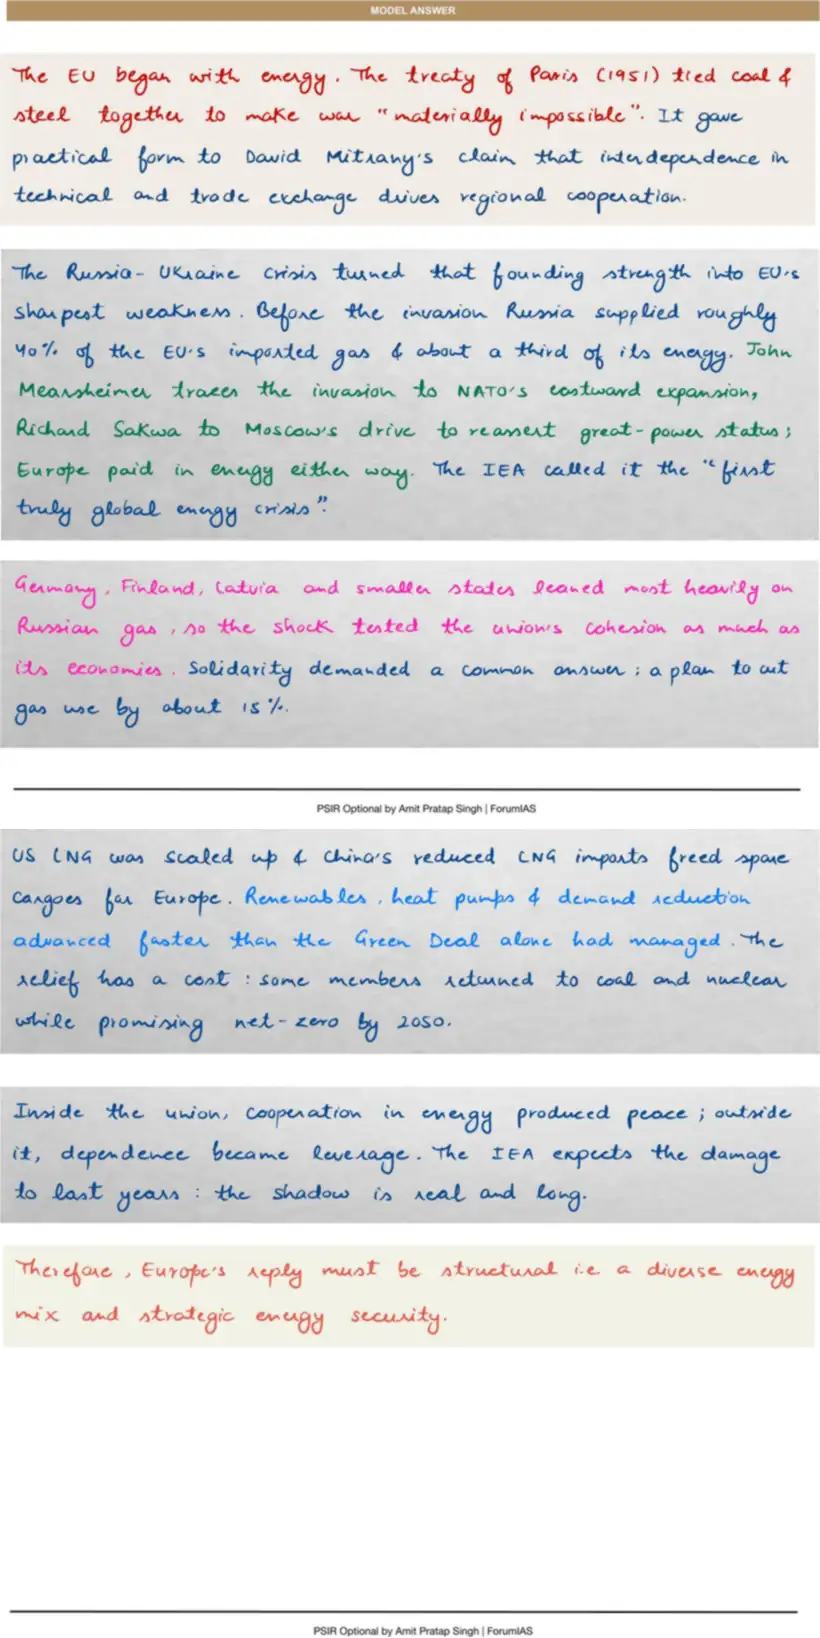 MODEL ANSWER
The EU began with energy. The treaty of Paris (1951) tied coal &
steel together to make war "materially impossible". It gave
practical form to David Mitrany's claim that interdependence in
technical and trade exchange drives regional cooperation.
The Russia-Ukraine crisis turned that founding strength into EU's
sharpest weakness. Before the invasion Russia supplied roughly
40% of the EU's imported gas & about a third of its energy. John
Mearsheimer traces the invasion to NATO's eastward expansion,
Richard Sakwa to Moscow's drive to reassert great-power status;
Europe paid in energy either way. The IEA called it the "first
truly global energy crisis".
Germany, Finland, Latvia and smaller states leaned most heavily on
Russian gas, so the shock tested the union's cohesion as much as
its economies. Solidarity demanded a common answer: a plan to cut
gas use by about 15%.
PSIR Optional by Amit Pratap Singh | ForumIAS
US LNG was scaled up & China's reduced LNG imports freed spare
cargoes for Europe. Renewables, heat pumps & demand reduction
advanced faster than the Green Deal alone had managed. The
relief has a cost: some members returned to coal and nuclear
while promising net-zero by 2050.
Inside the union, cooperation in energy produced peace; outside
it, dependence became leverage. The IEA expects the damage
to last years: the shadow is real and long.
Therefore, Europe's reply must be structural i.e a diverse energy
mix and strategic energy security.
PSIR Optional by Amit Pratap Singh | ForumIAS